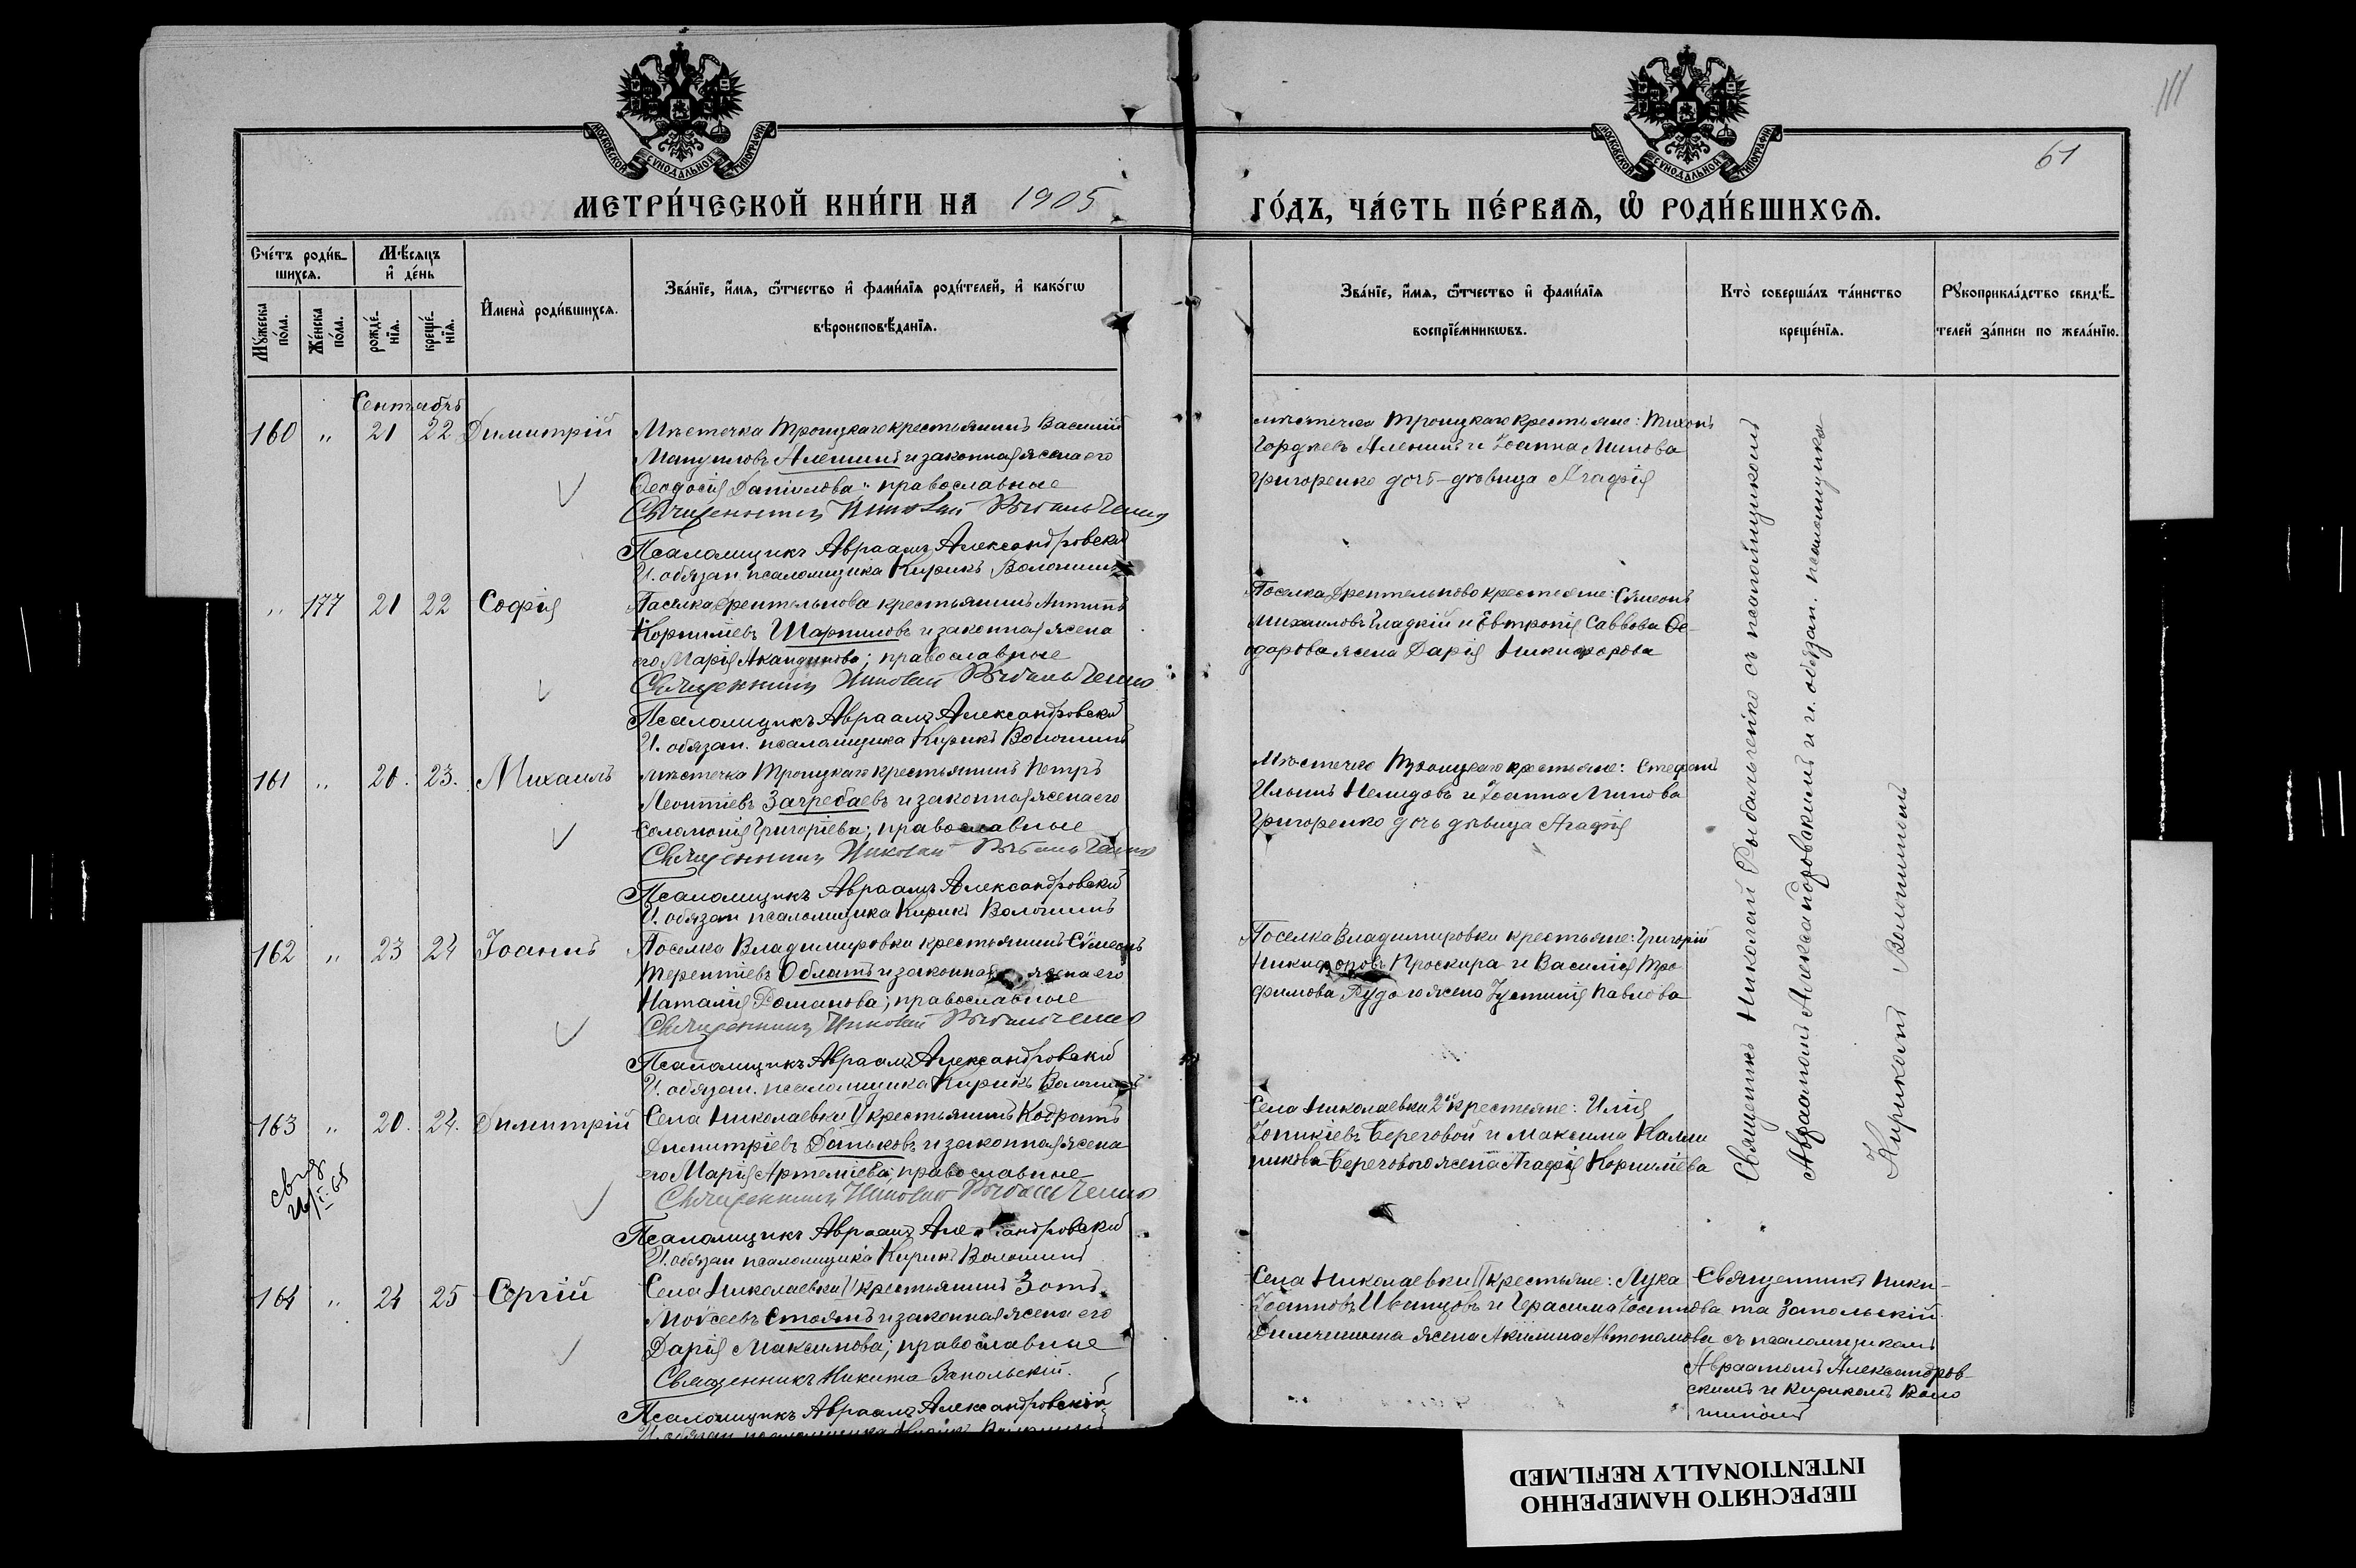 111
61
МОСКОВСКОЙ СѴНОДАЛЬНОЙ ТИПОГРАФІИ
МОСКОВСКОЙ СѴНОДАЛЬНОЙ ТИПОГРАФІИ
МЕТРИ́ЧЕСКОЙ КНИ́ГИ НА 1905
ГО́ДЪ, ЧА́СТЬ ПЕ́РВАѦ, Ѽ РОДИ́ВШИХСѦ.
Сче́тъ роди́в-
шихсѧ.
Мꙋ́жеска
по́ла.
Же́нска
по́ла.
Мѣ́сѧцъ
и҆ де́нь
рожде́-
нїѧ.
креще́-
нїѧ.
И҆мена̀ роди́вшихсѧ.
Зва́нїе, и҆́мѧ, ѻ҆́тчество и҆ фами́лїѧ роди́телей, и҆ како́гѡ
вѣроисповѣ́данїѧ.
Зва́нїе, и҆́мѧ, ѻ҆́тчество и҆ фами́лїѧ
воспрїе́мникѡвъ.
Кто̀ соверша́лъ та́инство
креще́нїѧ.
Рꙋкоприкла́дство свидѣ́-
телей за́писи по жела́нїю.
Сентябрь
160 " 21 22 Димитрій
Мѣстечка Троицкаго крестьянинъ Василій
Мануиловъ Алешинъ и законная жена его
Ѳеодосія Даніилова; православные
Священникъ Николай Рыбальченко
Псаломщикъ Авраамъ Александровскій
И. обязан. псаломщика Кирикъ Волошинъ
мѣстечка Троицкаго крестьяне: Тихонъ
Гордѣевъ Алешинъ и Іоанна Минова
Григоренко дочь-дѣвица Агафія
" 177 21 22 Софія
Поселка Арентельнова крестьянинъ Антипъ
Корниліевъ Шарпиловъ и законная жена
его Марія Акиндинова; православные
Священникъ Николай Рыбальченко
Псаломщикъ Авраамъ Александровскій
И. обязан. псаломщика Кирикъ Волошинъ
Поселка Арентельново крестьяне: Сѵмеонъ
Михаиловъ Гладкій и Евтропія Саввова Ѳе-
одорова жена Дарія Никифорова
161 " 20. 23. Михаилъ
мѣстечка Троицкаго крестьянинъ Петръ
Леонтіевъ Загребаевъ и законная жена его
Соломонія Григоріева; православные
Священникъ Николай Рыбальченко
Псаломщикъ Авраамъ Александровскій
И. обязан псаломщика Кирикъ Волошинъ
Мѣстечка Троицкаго крестьяне: Стефанъ
Ильинъ Нелидовъ и Іоанна Минова
Григоренко дочь дѣвица Агафія
162 " 23 24 Іоаннъ
Поселка Владимировки крестьянинъ Сѵмеонъ
Терентіевъ Облатъ и законная жена его
Наталія Романова; православные
Священникъ Николай Рыбальченко
Псаломщикъ Авраамъ Александровскій
И. обязан. псаломщика Кирикъ Волошинъ
Поселка Владимировки крестьяне: Григорій
Никифоровъ Проскира и Василія Тро
фимова жена Іустинія Павлова
163 " 20. 24. Димитрій
Села Николаевки II крестьянинъ Кодратъ
Димитріевъ Даньковъ и законная жена
его Марія Артеміева; православные
Священникъ Николай Рыбальченко
Псаломщикъ Авраамъ Александровскій
И. обязан псаломщика Кирикъ Волошинъ
Села Николаевки 2й крестьяне: Илія
Іоникіевъ Береговой и Максима Калли
никова Берегового жена Агафія Корниліева
164 " 24 25 Сергій
Села Николаевки II крестьянинъ Зотъ
Моѵсеевъ Стоянъ и законная жена его
Дарія Максимова; православные
Священникъ Никита Запольскій.
Псаломщикъ Авраамъ Александровскій
И. обязан псаломщика Кирикъ Волошинъ
Села Николаевки II крестьяне: Лука
Іоанновъ Иванцовъ и Герасима Іоаннова
жена Акилина Автономова
Священникъ Ники-
та Запольскій
съ псаломщикомъ
Авраамомъ Александров-
скимъ и Кирикомъ Воло
шиномъ
Священникъ Николай Рыбальченко съ псаломщикомъ
Авраамомъ Александровскимъ и и. обязан. псаломщика
Кирикомъ Волошиномъ
ПЕРЕСНЯТО НАМЕРЕННО
INTENTIONALLY REFILMED